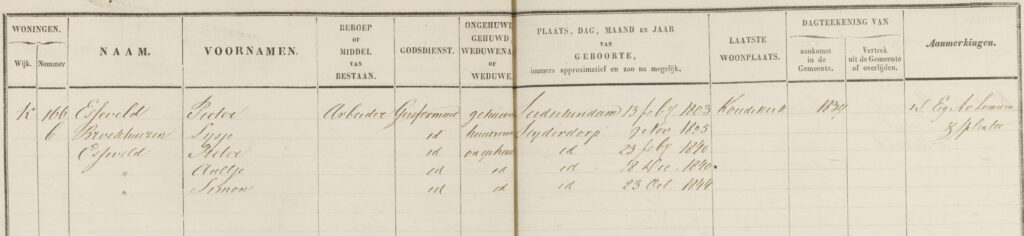 WONINGEN. NAAM. VOORNAMEN. BEROEP OF MIDDEL VAN BESTAAN. GODSDIENST. ONGEHUWD GEHUWD, WEDUWENAAR OF WEDUWE. PLAATS, DAG, MAAND EN JAAR VAN GEBOORTE, immers approximatief en zoo na mogelijk. LAATSTE WOONPLAATS. DAGTEEKENING VAN Aanmerkingen.
Wijk. Nommer aankomst in de Gemeente. Vertrek uit de Gemeente of overlijden.
K 166 Esseveld Pieter Arbeider Gereformeerd gehuwd Leidschendam 13 feby 1803 Koudekerk 1839
6 Broekhuizen Sijtje id huisvrouw Leyderdorp 9 Nov 1805 & Splinter
Esseveld Pieter id ongehuwd id 23 feby 1840
" Aaltje id id id 18 Dec 1840
" Simon id id id 23 Oct 1844